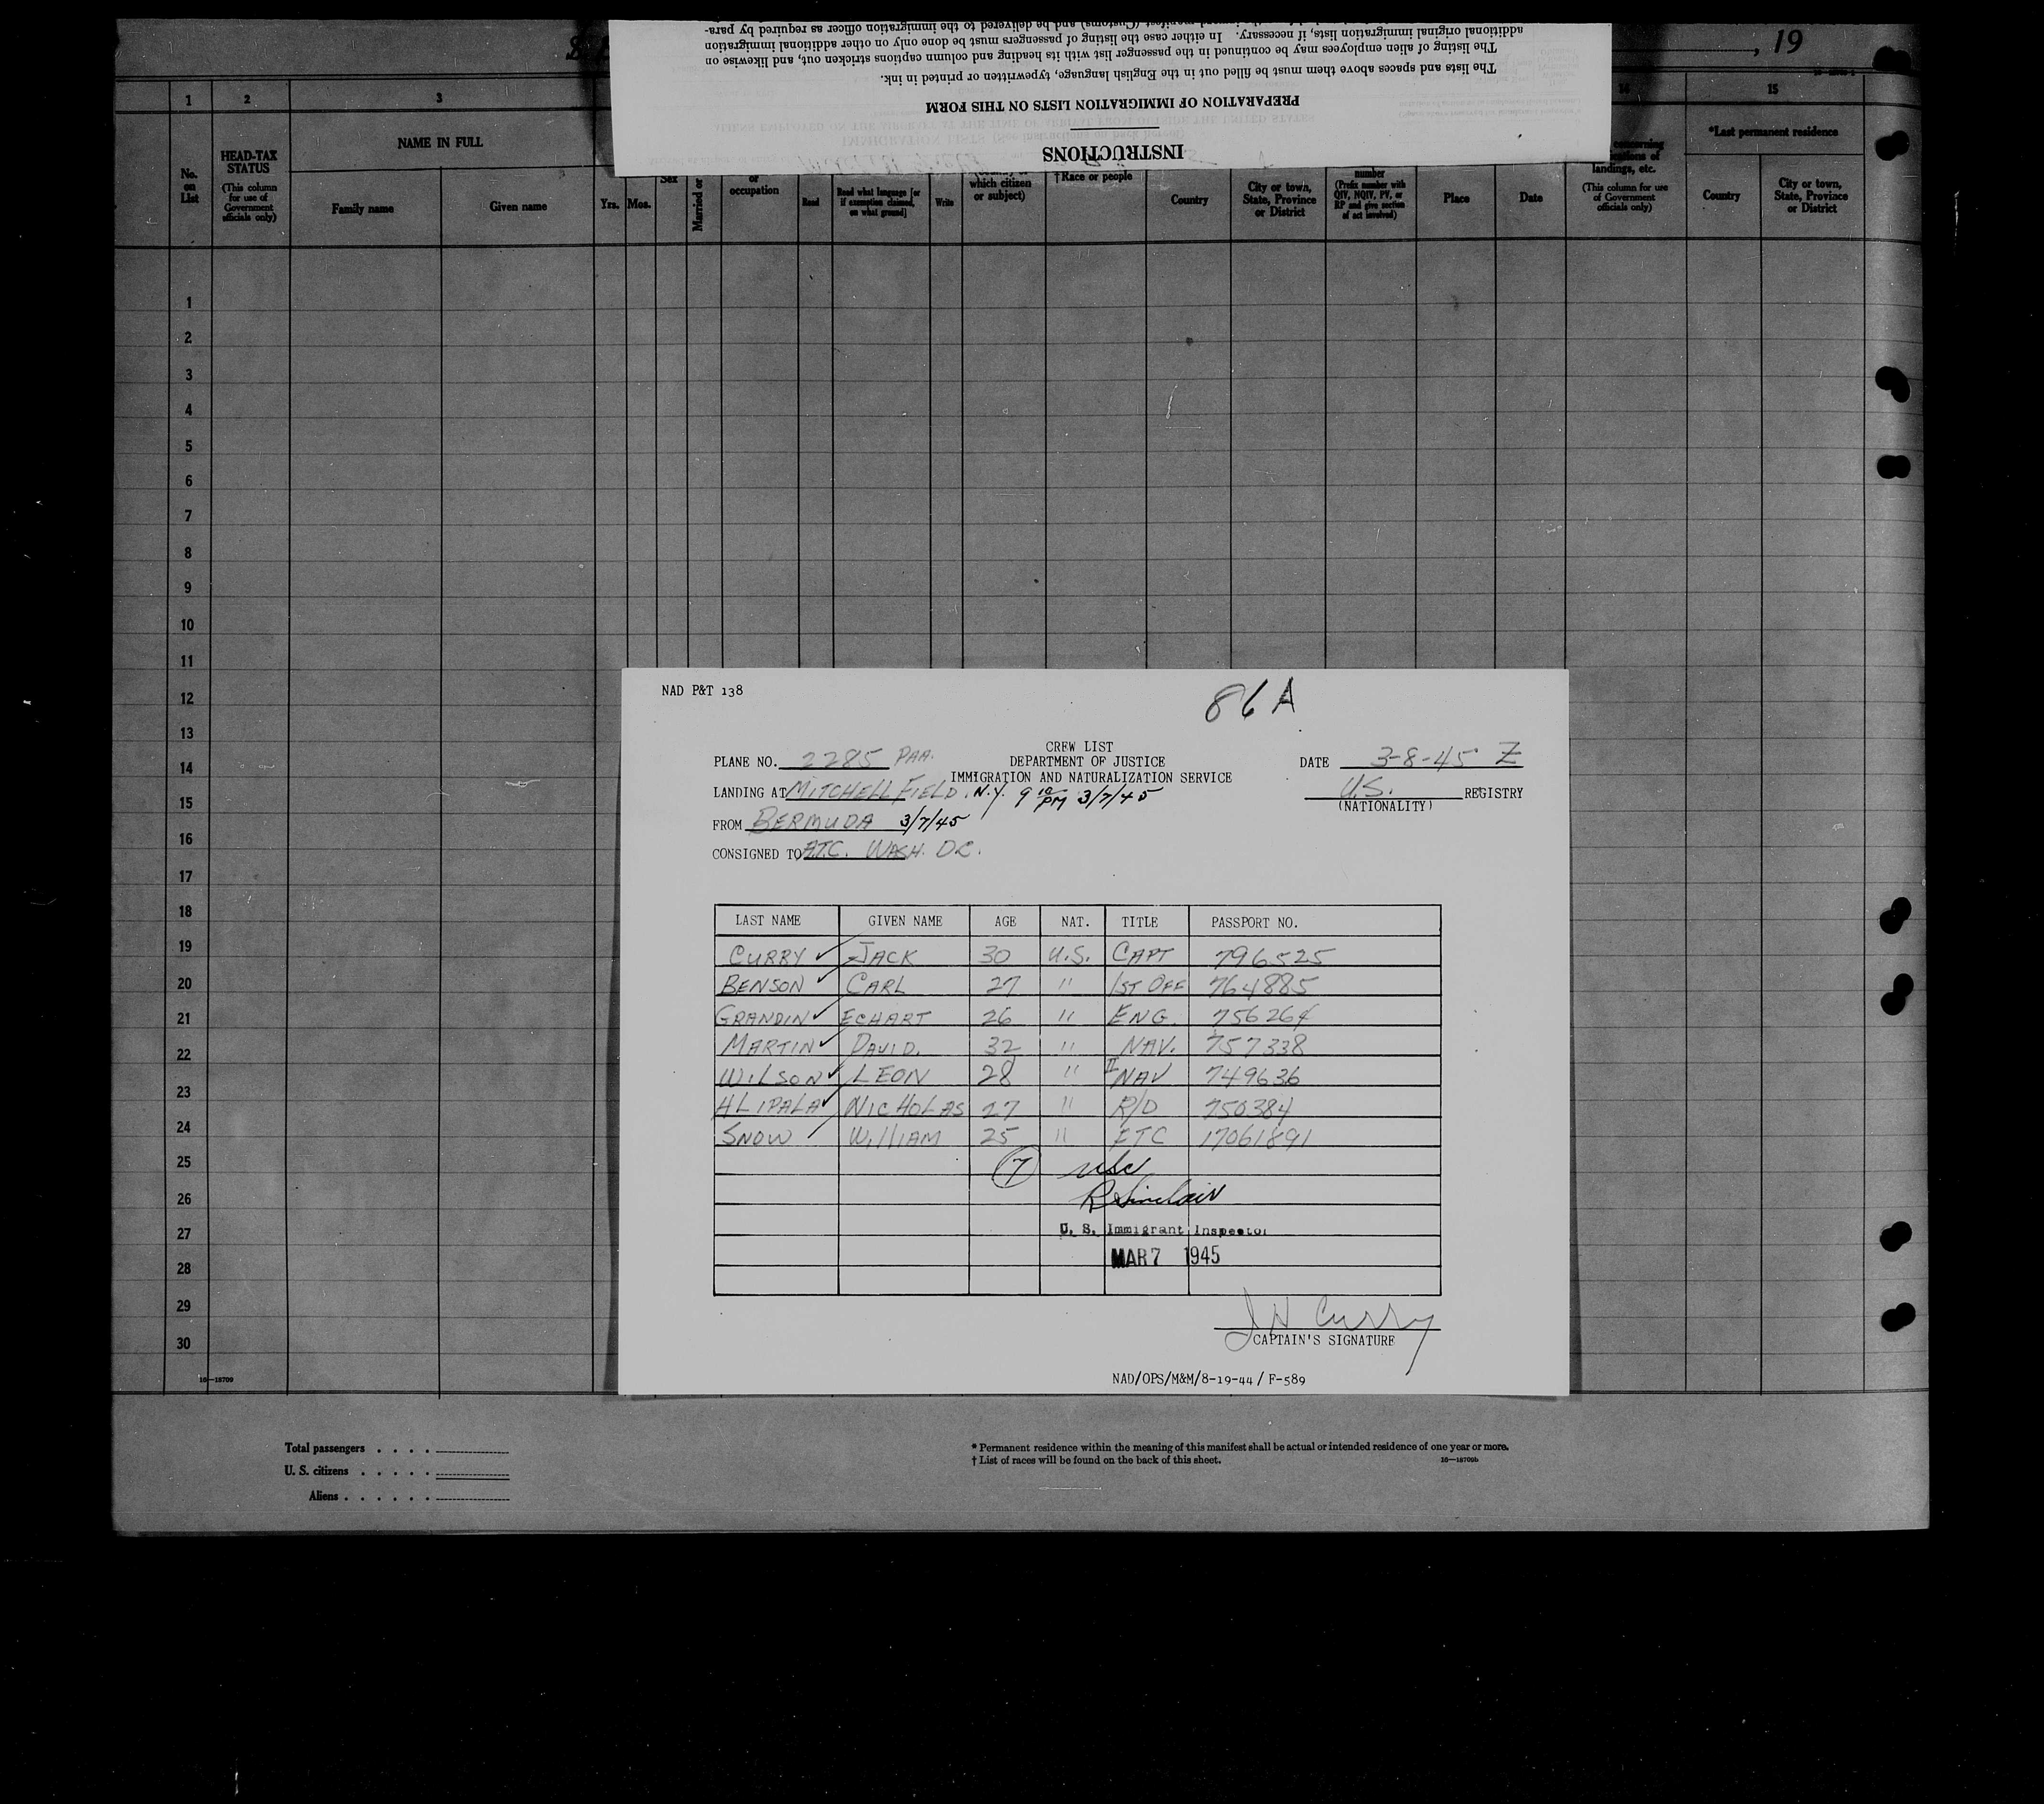 The lists and spaces above them must be filled out in the English language, typewritten or printed in ink.
The listing of alien employees may be continued in the passenger list with its heading and column captions stricken out, and likewise on
additional original immigration lists, if necessary. In either case the listing of passengers must be done only on other additional immigration
(Customs) and be delivered to the immigration officer as required by para-
PREPARATION OF IMMIGRATION LISTS ON THIS FORM
INSTRUCTIONS
, 19
1 2 3 15
No. on List
HEAD-TAX STATUS
(This column for use of Government officials only)
NAME IN FULL
Family name Given name
Yrs. Mos.
Sex
Married or
or occupation
Read
Read what language [or if exemption claimed, on what ground]
Write
which citizen or subject)
†Race or people
Country
City or town, State, Province or District
number
(Prefix number with QIV, NQIV, PV, or RP and give section of act involved)
Place
Date
landings, etc.
(This column for use of Government officials only)
*Last permanent residence
Country
City or town, State, Province or District
1
2
3
4
5
6
7
8
9
10
11
12
13
14
15
16
17
18
19
20
21
22
23
24
25
26
27
28
29
30
16—18709
NAD P&T 138
86A
CREW LIST
DEPARTMENT OF JUSTICE
IMMIGRATION AND NATURALIZATION SERVICE
PLANE NO. 2285 PAA.
DATE 3-8-45 Z
LANDING AT MITCHELL FIELD. N.Y. 9 10 PM 3/7/45
U.S. REGISTRY
(NATIONALITY)
FROM BERMUDA 3/7/45
CONSIGNED TO A.T.C. WASH. D.C.
LAST NAME GIVEN NAME AGE NAT. TITLE PASSPORT NO.
CURRY ✓ JACK 30 U.S. CAPT 796525
BENSON ✓ CARL 27 " 1ST OFF 764885
GRANDIN ✓ ECHART 26 " ENG. 756264
MARTIN ✓ DAVID. 32 " NAV. 757338
WILSON ✓ LEON 28 " II NAV 749636
HLIPALA ✓ NICHOLAS 27 " R/O 750384
SNOW ✓ WILLIAM 25 " FTC 17061891
7 USC
R Sinclair
U. S. Immigrant Inspector
MAR 7 1945
J H Curry
CAPTAIN'S SIGNATURE
NAD/OPS/M&M/8-19-44/F-589
Total passengers . . . .
U. S. citizens . . . . .
Aliens . . . . . .
* Permanent residence within the meaning of this manifest shall be actual or intended residence of one year or more.
† List of races will be found on the back of this sheet.
16—18709b